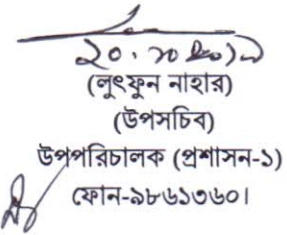 (লুৎফুন নাহার)
(উপসচিব)
উপপরিচালক (প্রশাসন-১)
ফোন-৯৮৬১৩৬০।